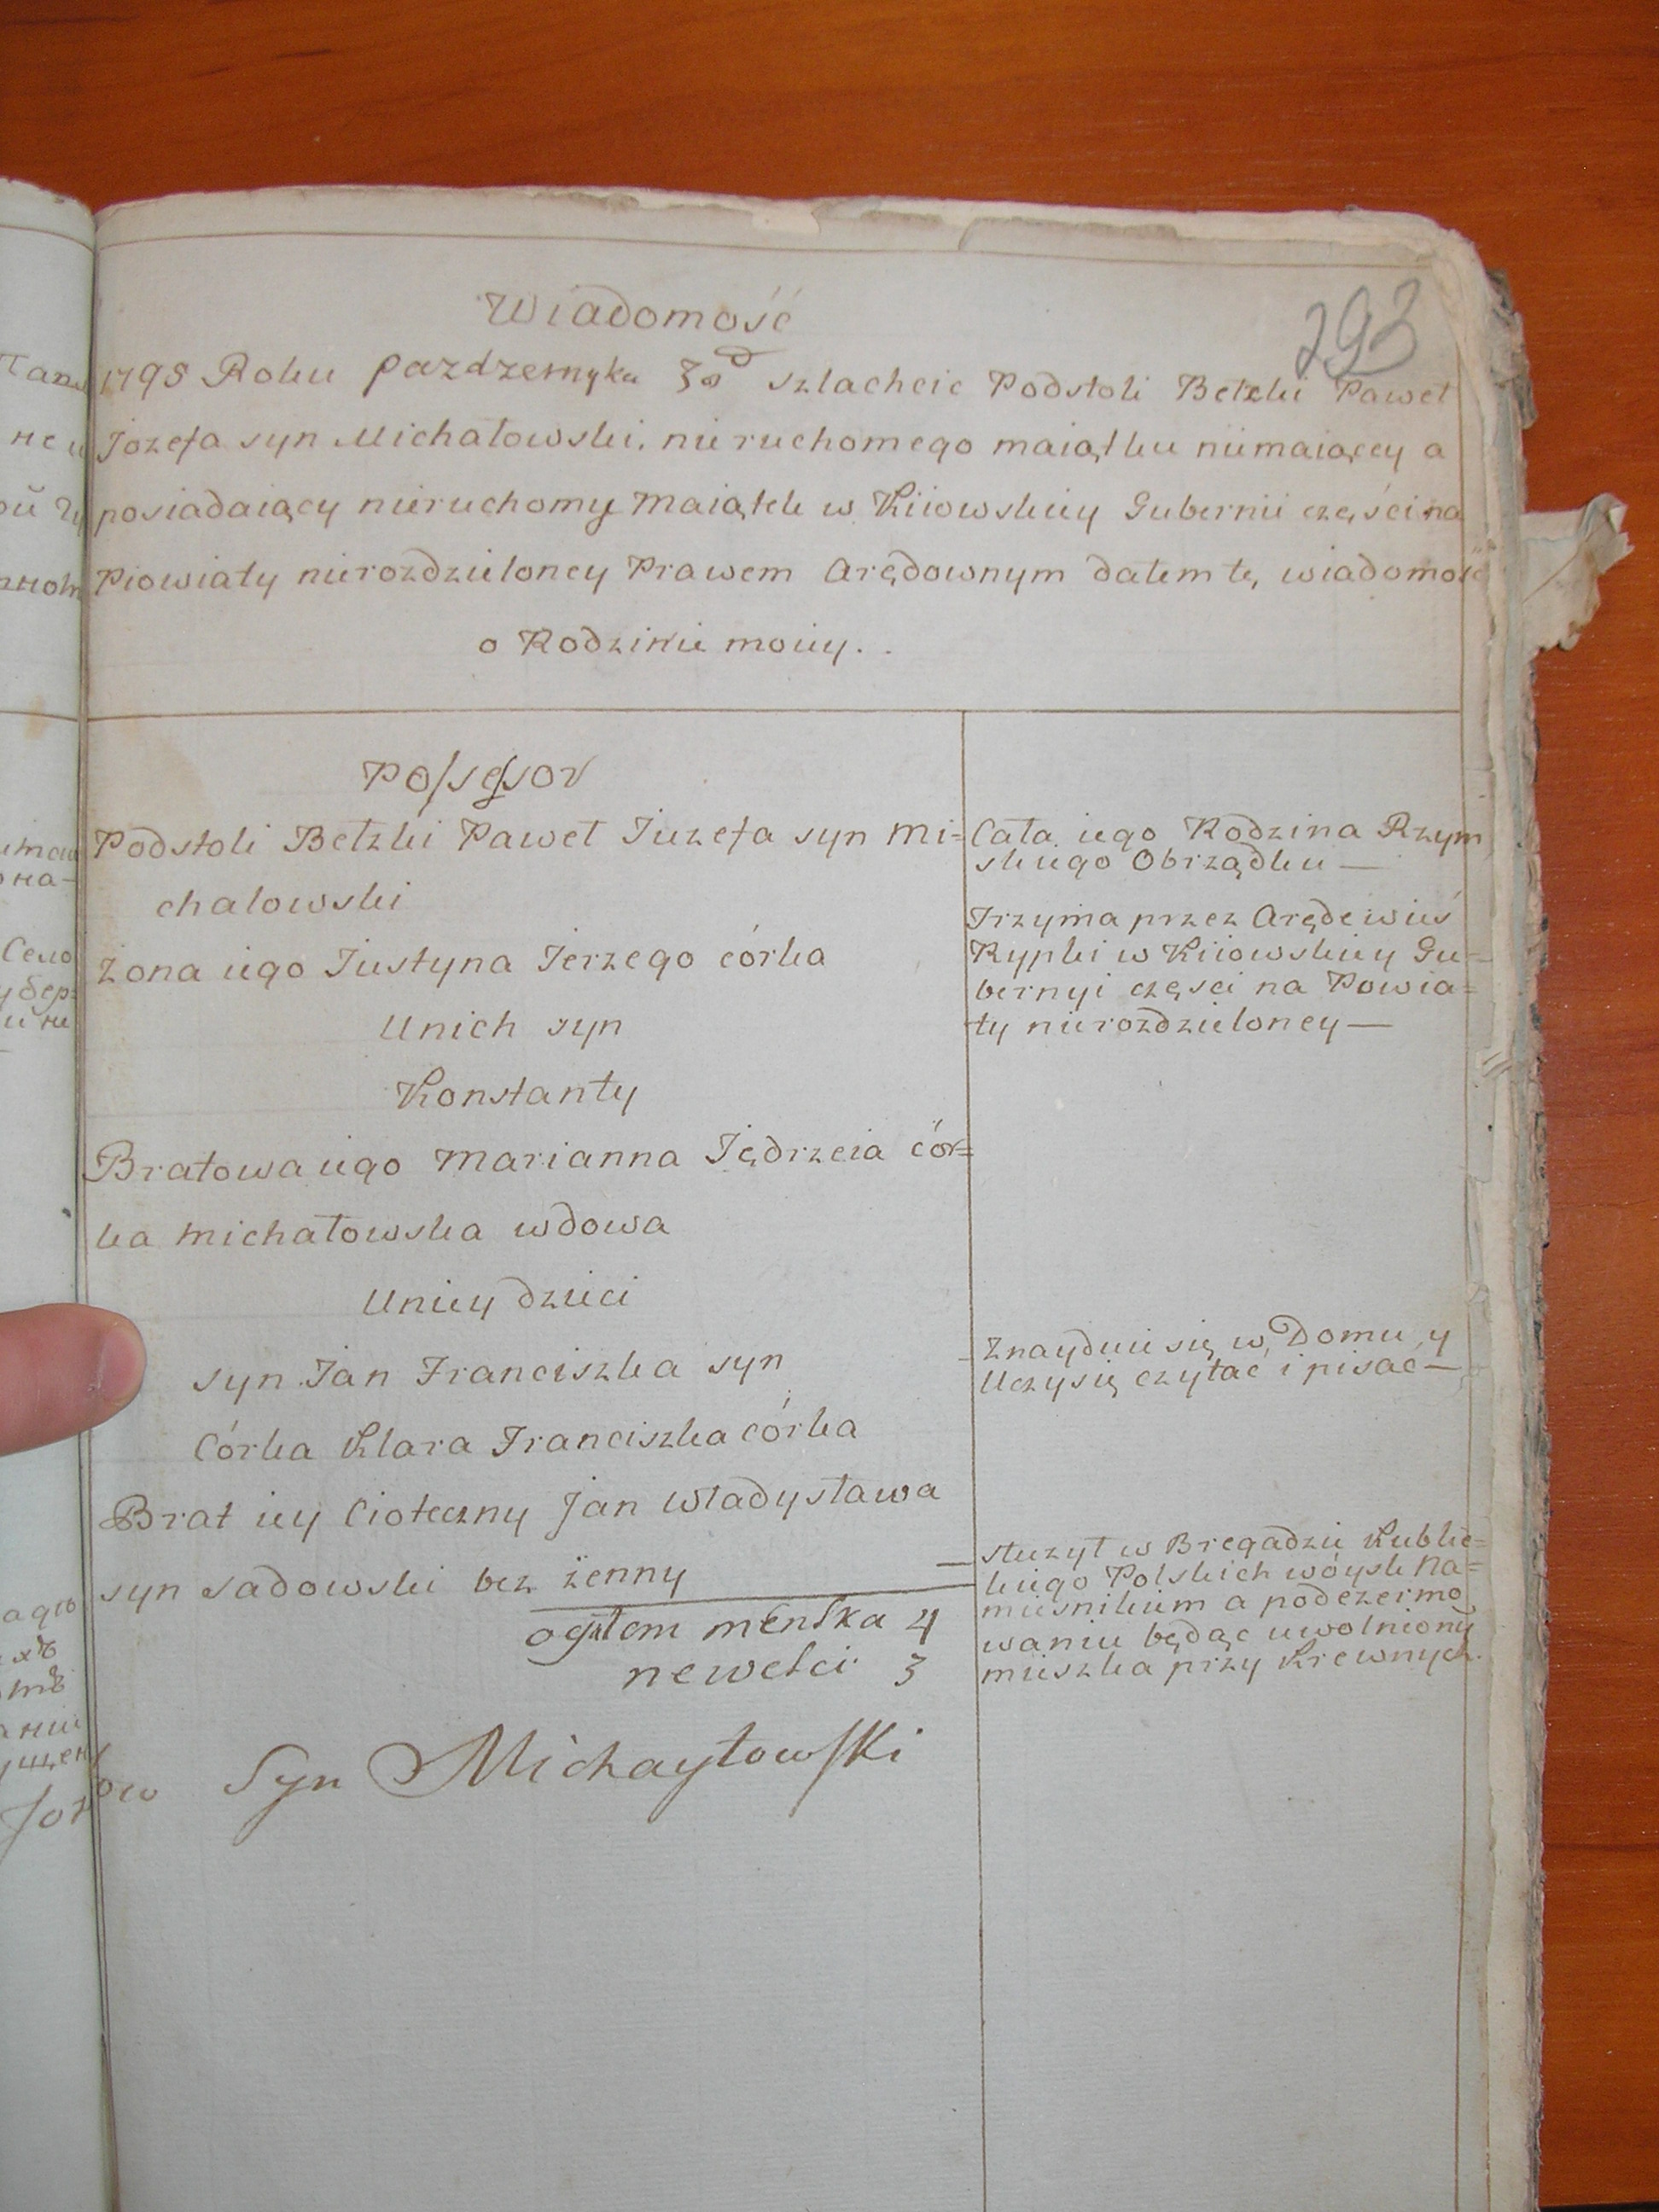 293
Wiadomość
1795 Roku pazdzernyka 30 d szlachcic Podstoli Bełzki Paweł
Jozefa syn Michałowski. nieruchomego maiątku niemaiący a
posiadaiący nieruchomy Maiątek w Kiiowskiey Gubernii części na
Piowiaty nierozdzieloney Prawem Arędownym dałem tę wiadomość
o Rodzinie moiey. .
Possessor
Podstoli Bełzki Paweł Iuzefa syn Mi=
chalowski
Żona iego Justyna Jerzego córka
Unich syn
Konstanty
Bratowa iego Marianna Jędrzeia cór=
ka Michałowska wdowa
Uniey dzieci
syn Jan Franciszka syn
Córka Klara Franciszka córka
Brat iey Cioteczny Jan Władysława
syn Sadowski bez żenny
ogułem menska 4
newesci 3
Syn Michayłowski
Cała iego Rodzina Rzym
skiego Obrządku —
Trzyma przez Arędę wieś
Rypki w Kiiowskiey Gu=
bernyi części na Powia=
ty nierozdzieloney —
Znayduie się w Domu y
Uczy się czytać i pisać —
służył w Bregadzie Kublic=
kiego Polskich wóysk Na=
miesnikiem a podezermo
waniu będąc uwolniony
mieszka przy Krewnych.